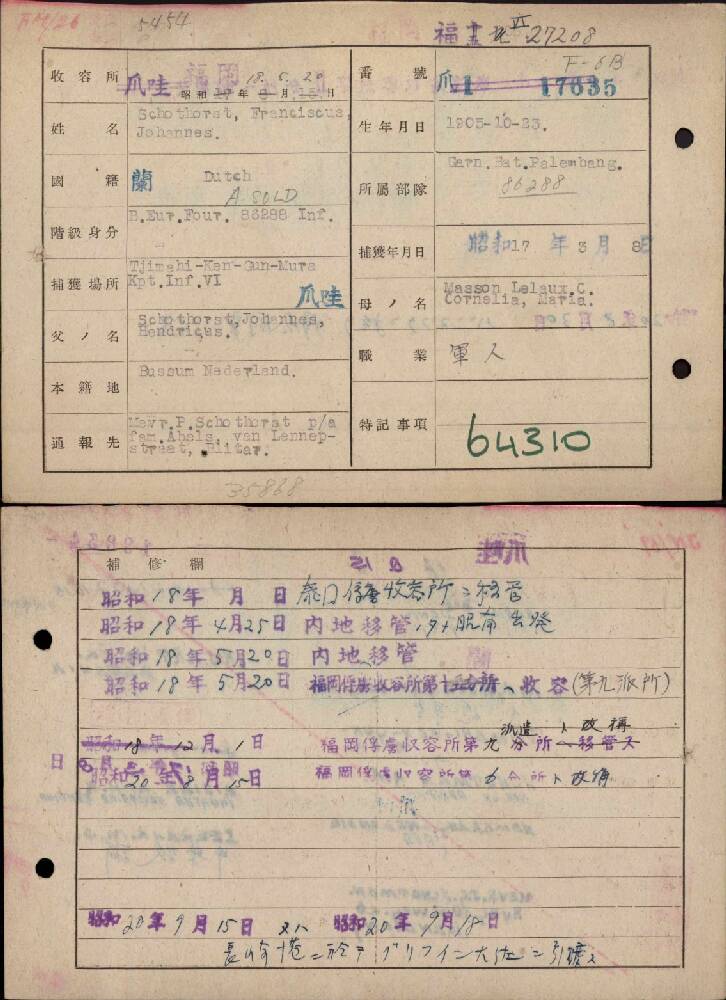 5454
福 27208
F-6B
收容所 爪哇 福岡 18.5.20
昭和17年8月15日
番號 爪1 17635
姓名 Schothorst, Franciscus,
Johannes.
生年月日 1905-10-23.
國籍 蘭 Dutch
A SOLD
所屬部隊 Garn.Bat.Palembang.
86288
階級身分 B.Eur.Four. 86288 Inf.
捕獲年月日 昭和17年3月8日
捕獲場所 Tjimahi-Ken-Gun-Mura
Kpt.Inf.VI
爪哇
母ノ名 Masson Lelaux.C.
Cornelia, Maria.
父ノ名 Schothorst, Johannes,
Hendricus.
職業 軍人
本籍地 Bussum Nederland.
通報先 Mevr.P.Schothorst p/a
fam.Abels, van Lennep-
straat, Blitar.
特記事項 64310
35868
補修欄
昭和18年 月 日 泰国俘虜收容所ニ移管
昭和18年4月25日 内地移管
昭和18年5月20日 内地へ移管
昭和18年5月20日 福岡俘虜收容所第十五分所へ收容(第九派所)
派遣 ト改稱
昭和18年12月1日 福岡俘虜収容所第九分所へ移管ス
昭和20年3月15日 福岡俘虜収容所第6分所ト改稱
昭和20年9月15日 又ハ 昭和20年9月18日
長崎港ニ於テグリフイン大佐ニ引渡ス